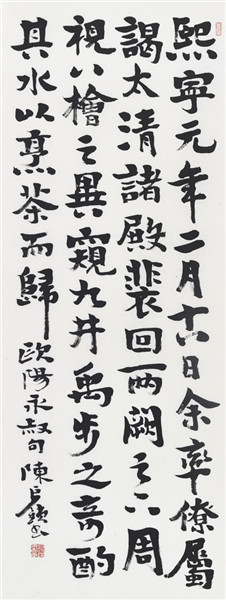 熙寧元年二月十六日余率僚屬
謁太清諸殿裴回兩闕之下周
視八檜之異窺九井禹步之奇酌
其水以烹茶而歸
歐陽永叔句陳